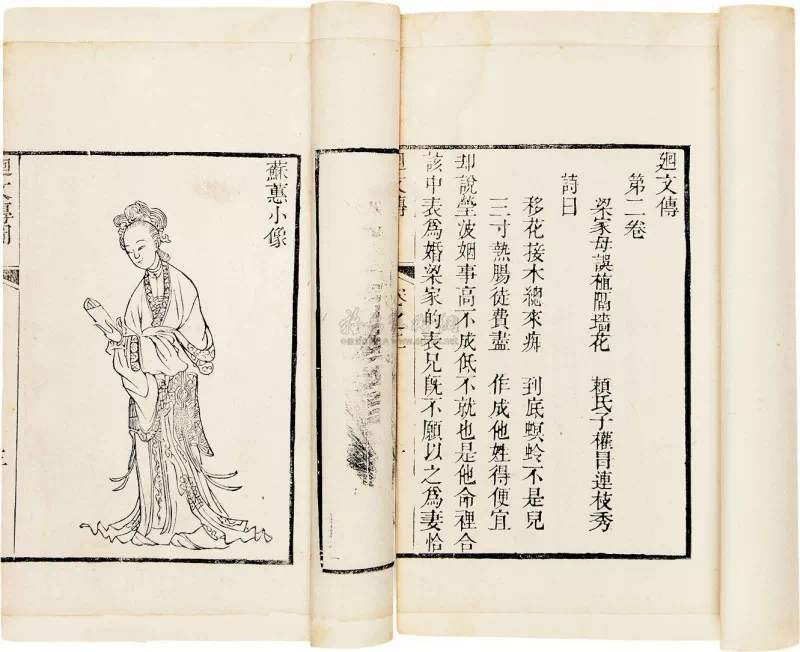 廻文傳
第二卷
梁家母誤植隔墻花　賴氏子權冒連枝秀
詩曰
移花接木總來痴　到底螟蛉不是兒
三寸熱腸徒費盡　作成他姓得便宜
却說瑩波姻事高不成低不就也是他命裡合
該中表爲婚梁家的表兄旣不願以之爲妻恰
廻文傳
蘇蕙小像
廻文傳圖
三